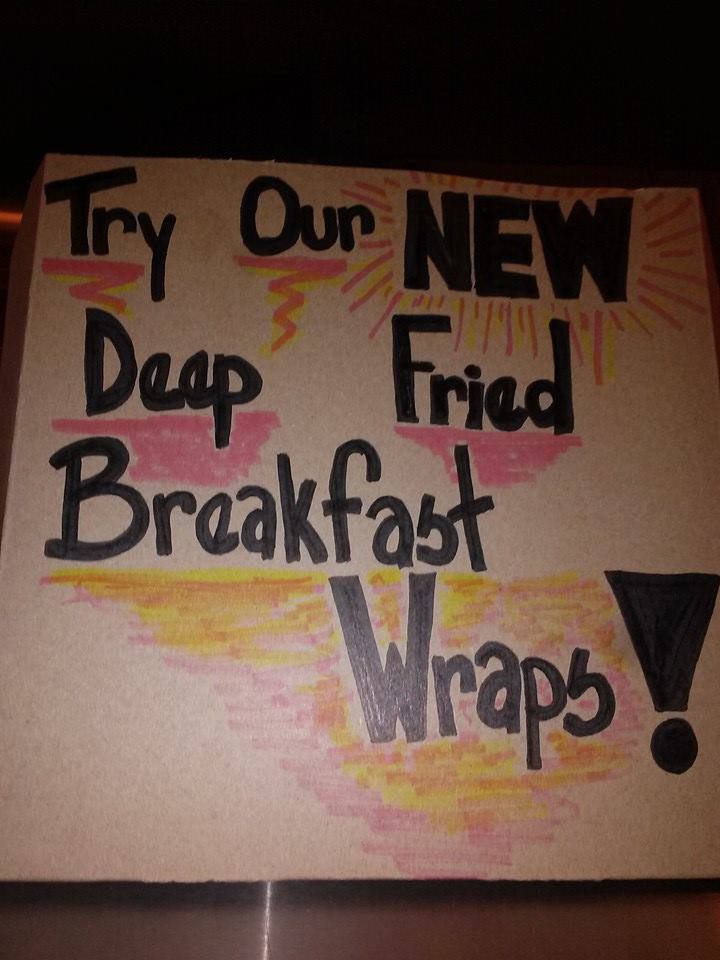 Try Our NEW
Deep Fried
Breakfast
Wraps!